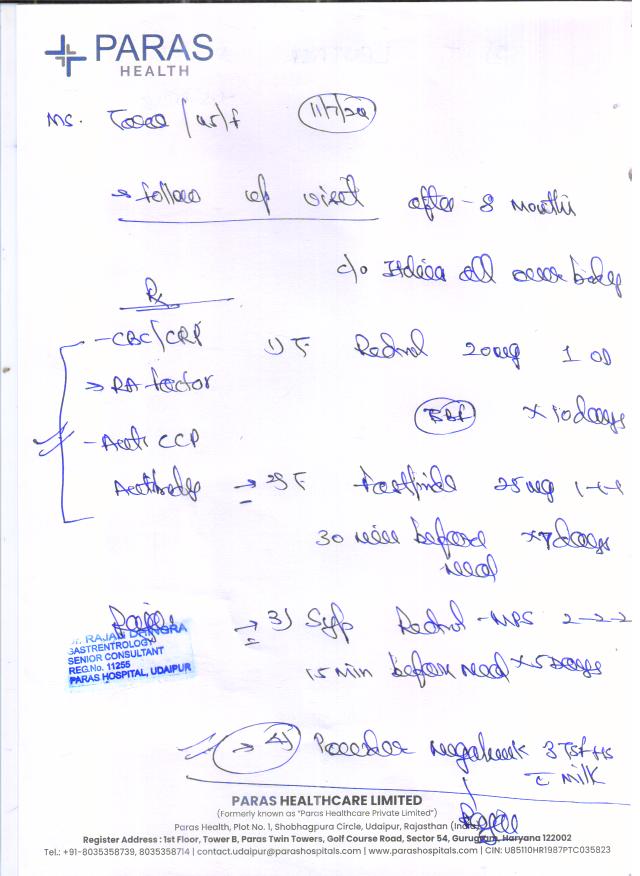 PARAS
HEALTH
Ms. /45/f 11/7/24
→ follow up visit after - 8 months
c/o all over body
Rx
- CBC/CRP
1) T. 20mg 1 OD
→ RA factor
BBF x 10 days
- Anti CCP
Antibody → 2) T. 25mg 1-1-1
30 min before x 7 days
meal
→ 3) Syp - MPS 2-2-2
15 min before meal x 5 Days
Dr. RAJAN DHINGRA
GASTRENTROLOGY
SENIOR CONSULTANT
REG.No. 11255
PARAS HOSPITAL, UDAIPUR
→ 4) Powder 3 Tsf HS
c milk
PARAS HEALTHCARE LIMITED
(Formerly known as "Paras Healthcare Private Limited")
Paras Health, Plot No. 1, Shobhagpura Circle, Udaipur, Rajasthan (India)
Register Address : 1st Floor, Tower B, Paras Twin Towers, Golf Course Road, Sector 54, Gurugram, Haryana 122002
Tel.: +91-8035358739, 8035358714 | contact.udaipur@parashospitals.com | www.parashospitals.com | CIN: U85110HR1987PTC035823